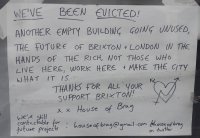 WE'VE BEEN EVICTED!
ANOTHER EMPTY BUILDING GOING UNUSED,
THE FUTURE OF BRIXTON + LONDON IN THE
HANDS OF THE RICH, NOT THOSE WHO
LIVE HERE, WORK HERE + MAKE THE CITY
WHAT IT IS.
THANKS FOR ALL YOUR
SUPPORT BRIXTON!
x x House of Brag
We're still
contactable for
future projects : houseofbrag@gmail.com @houseofbrag
on twitter